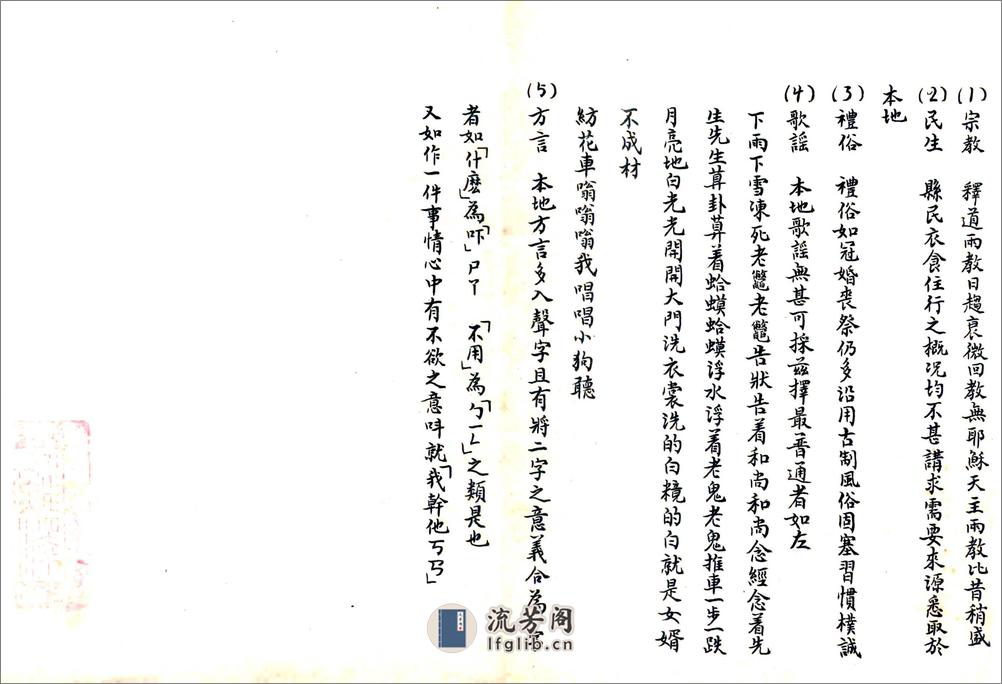 (1)宗教　釋道兩教日趨衰微回教無耶穌天主兩教比昔稍盛
(2)民生　縣民衣食住行之概況均不甚講求需要來源悉取於
本地
(3)禮俗　禮俗如冠婚喪祭仍多沿用古制風俗固塞習慣樸誠
(4)歌謡　本地歌謡無甚可採茲擇最普通者如左
下雨下雪凍死老鼈老鼈告狀告着和尚和尚念經念着先
生先生算卦算着蛤蟆蛤蟆浮水浮着老鬼老鬼推車一步一跌
月亮地白光光開開大門洗衣裳洗的白糨的白就是女婿
不成材
紡花車嗡嗡嗡我唱唱小狗聽
(5)方言　本地方言多入聲字且有將二字之意義合為
者如「什麽」為「吓」ㄕㄚ　「不用」為「ㄅㄧㄥ」之類是也
又如作一件事情心中有不欲之意呌就「我幹他ㄎㄢ」
流芳阁
lfglib.com